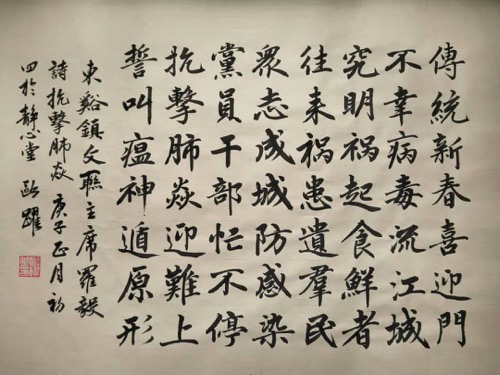 傳統新春喜迎門
不幸病毒流江城
究明祸起食鮮者
往来祸患遺羣民
衆志成城防感染
黨員干部忙不停
抗擊肺炎迎難上
誓叫瘟神遁原形
东谿鎮文聯主席羅毅
詩抗擊肺炎 庚子正月初
四於静心堂 歐躍